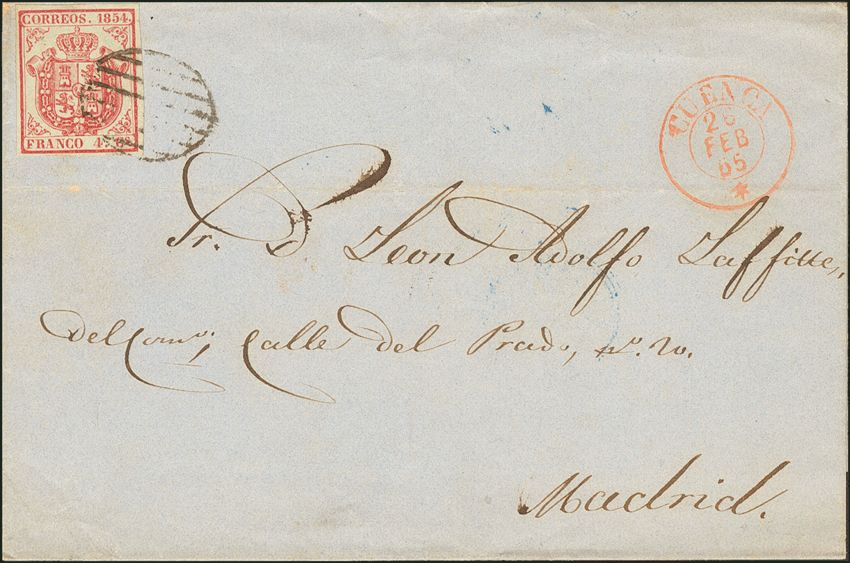 CORREOS. 1854.
FRANCO 4
CUENCA
26
FEB
55
Sr. D. Leon Adolfo Laffitte,
del com.º, Calle del Prado, nº. 20.
Madrid.